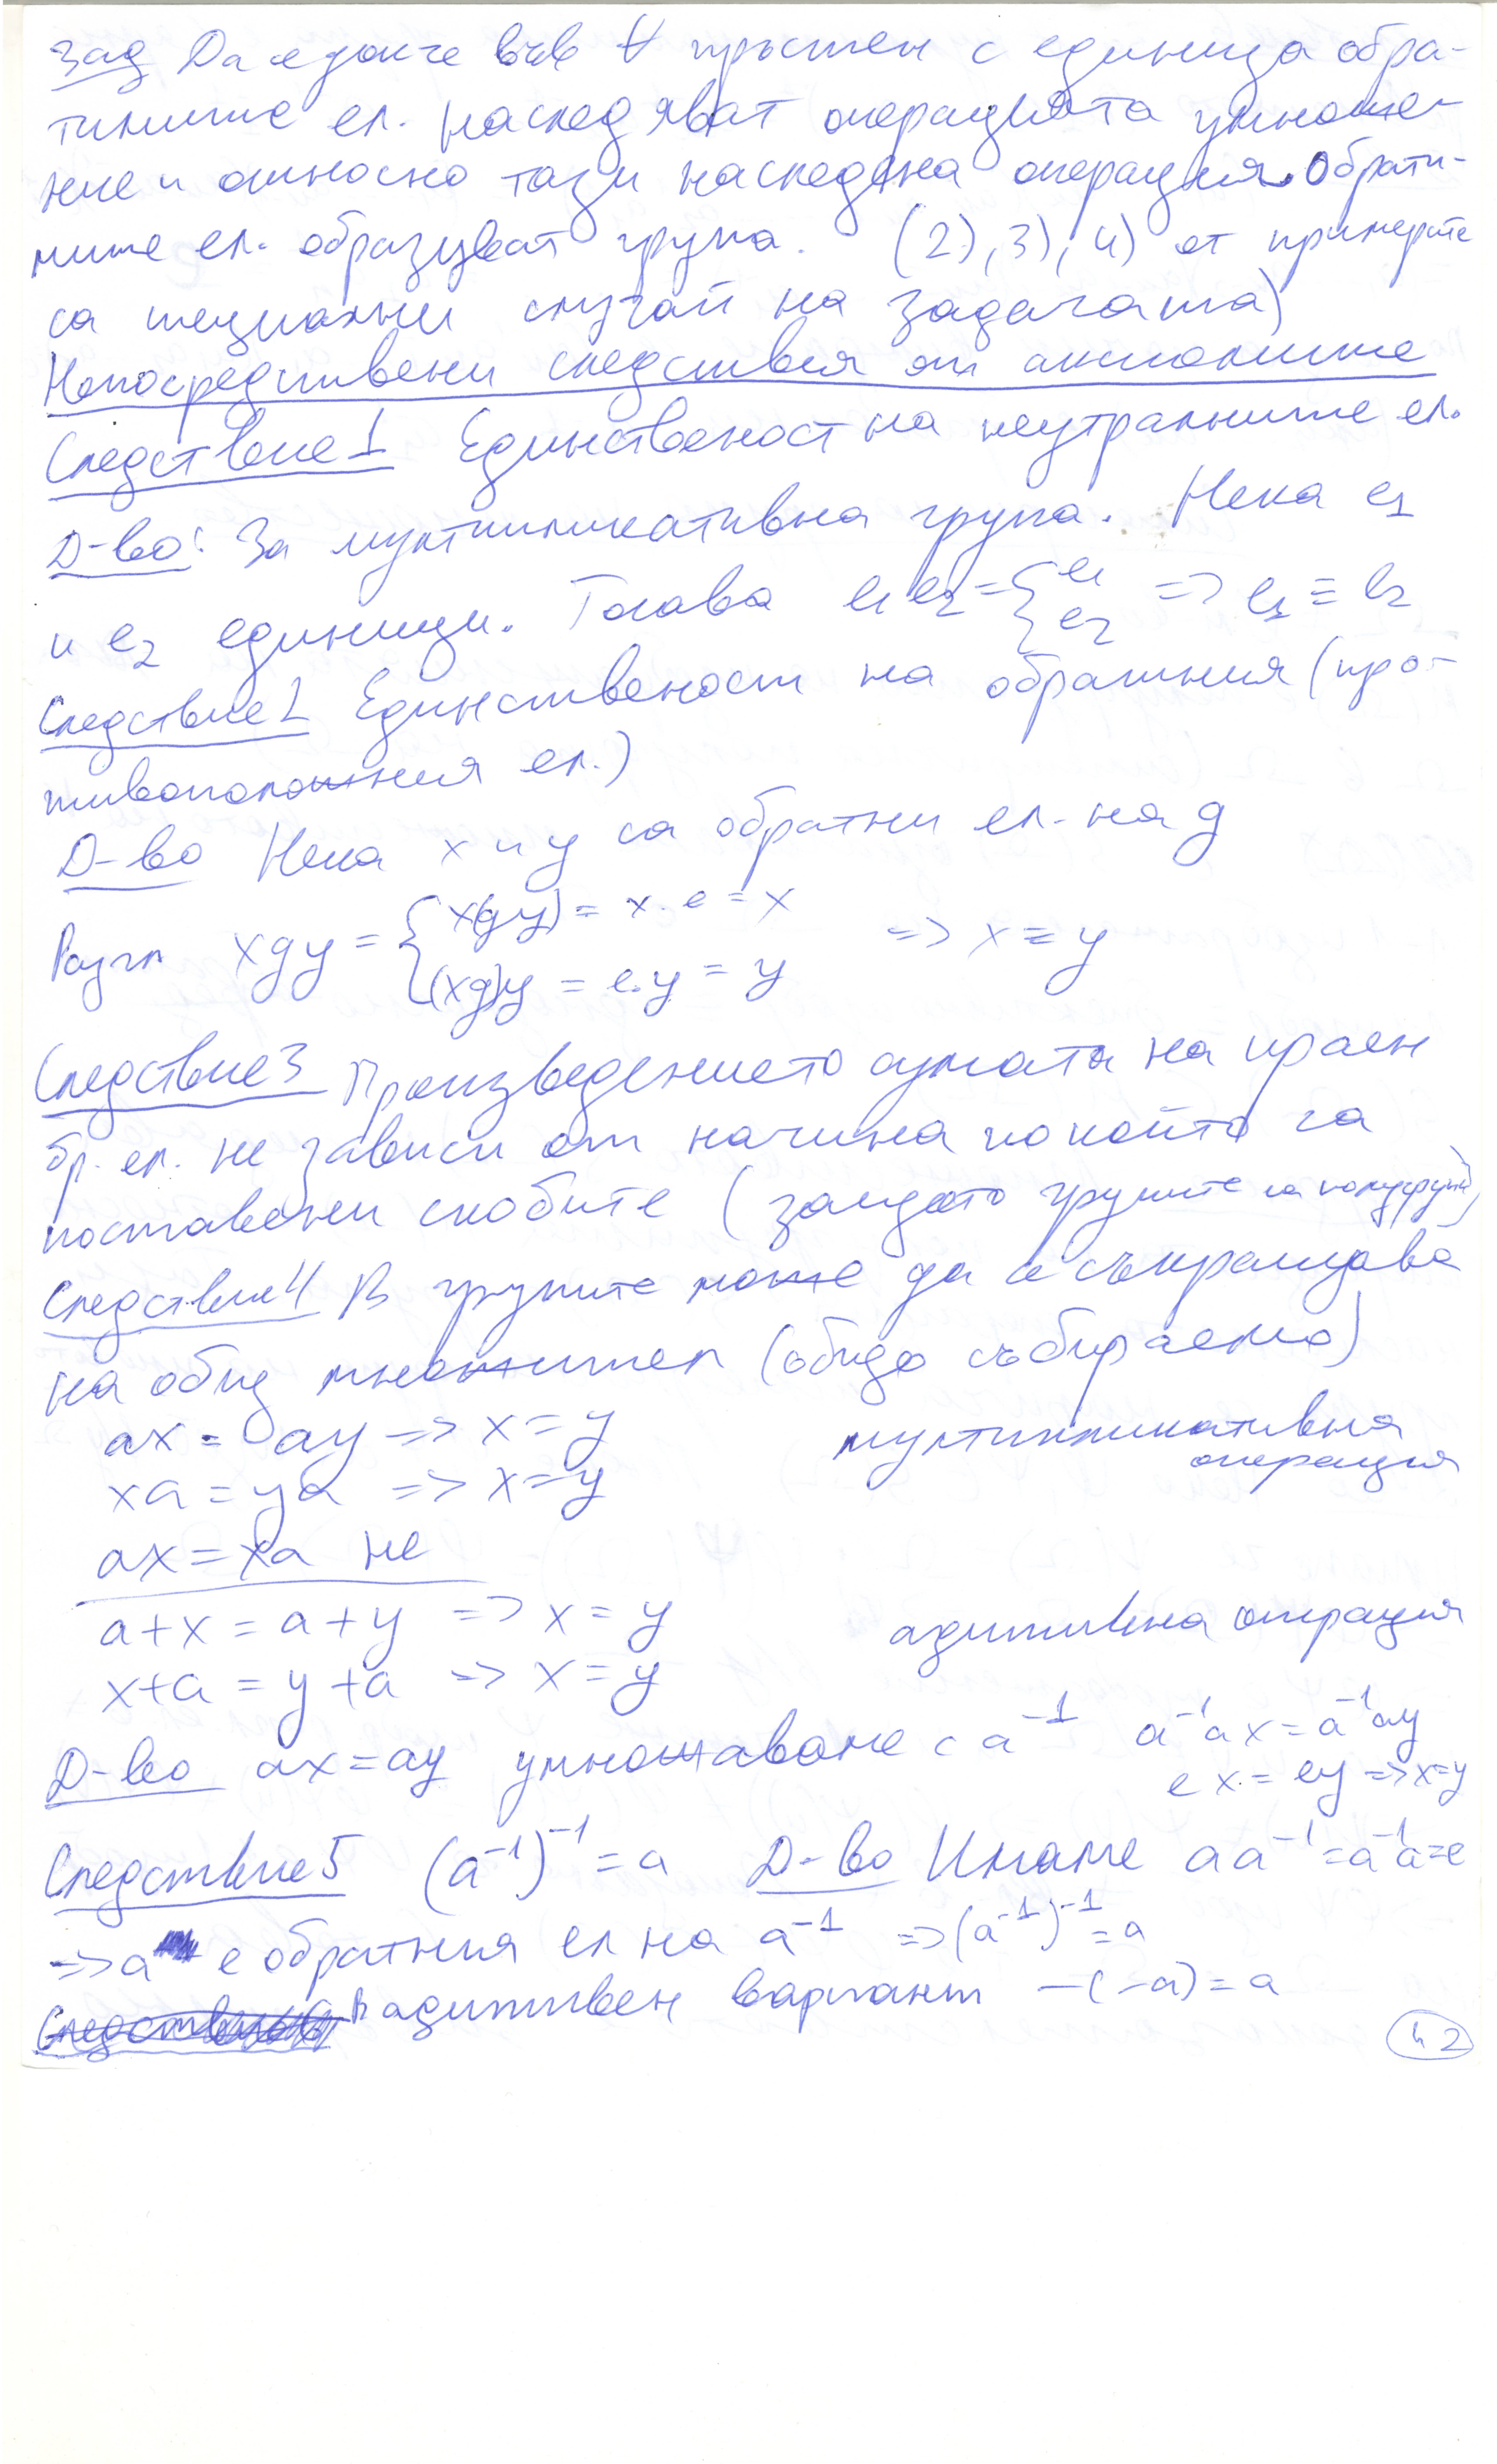 Зад Да се докаже във ∀ пръстен с единица обра-
тимите ел. наследяват операцията умноже-
ние и относно тази наследена операция обрати-
мите ел. образуват група. (2), 3), 4) от примерите
са специални случаи на задачата)
Непосредствени следствия от аксиомите
Следствие 1 Единственост на неутралните ел.
Д-во: За мултипликативна група. Нека e₁
и e₂ единици. Тогава e₁e₂ = { e₁ e₂ => e₁ = e₂
Следствие 2 Единственост на обратния (про-
тивоположния ел.)
Д-во Нека x и y са обратни ел. на g
Разгл xgy = { x(gy) = x.e = x
(xg)y = e.y = y => x = y
Следствие 3 Произведението сумата на краен
бр. ел. не зависи от начина по който са
поставени скобите (защото групите са полугрупи)
Следствие 4 В групите може да се съкращава
на общ множител (общо събираемо)
ax = ay => x = y мултипликативна
xa = ya => x = y операция
ax = xa не
a+x = a+y => x = y адитивна операция
x+a = y+a => x = y
Д-во ax = ay умножаваме с a⁻¹ a⁻¹ax = a⁻¹ay
ex = ey => x=y
Следствие 5 (a⁻¹)⁻¹ = a Д-во Имаме aa⁻¹ = a⁻¹a = e
=> a е обратния ел на a⁻¹ => (a⁻¹)⁻¹ = a
В адитивен вариант -(-a) = a
42